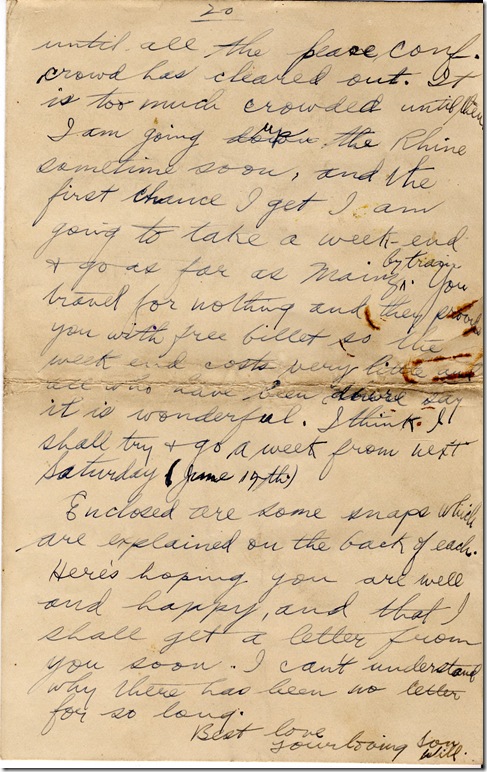 20
until all the peace conf.
crowd has cleared out. It
is too much crowded until then
I am going up the Rhine
sometime soon, and the
first chance I get I am
going to take a week-end
& go as far as Mainz by train. You
travel for nothing and they provide
you with free billet so the
week end costs very little and
all who have been there say
it is wonderful. I think I
shall try & go a week from next
Saturday (June 14th)
Enclosed are some snaps which
are explained on the back of each.
Here's hoping you are well
and happy, and that I
shall get a letter from
you soon. I can't understand
why there has been no letter
for so long.
Best love
Your loving son
Will.